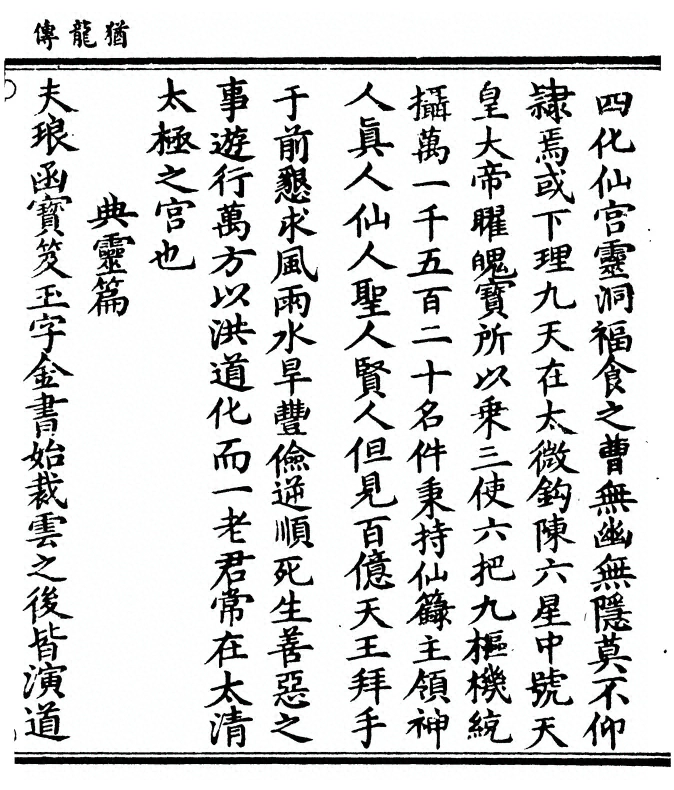 猶龍傳
四化仙宮靈洞福食之曹無幽無隱莫不仰
隸焉或下理九天在太微鈎陳六星中號天
皇大帝曜魄寶所以乗三使六把九樞機統
攝萬一千五百二十名件秉持仙籙主領神
人真人仙人聖人賢人但見百億天王拜手
于前懇求風雨水旱豐儉逆順死生善惡之
事遊行萬方以洪道化而一老君常在太清
太極之宮也
典靈篇
夫琅函寶笈玉字金書始裁雲之後皆演道